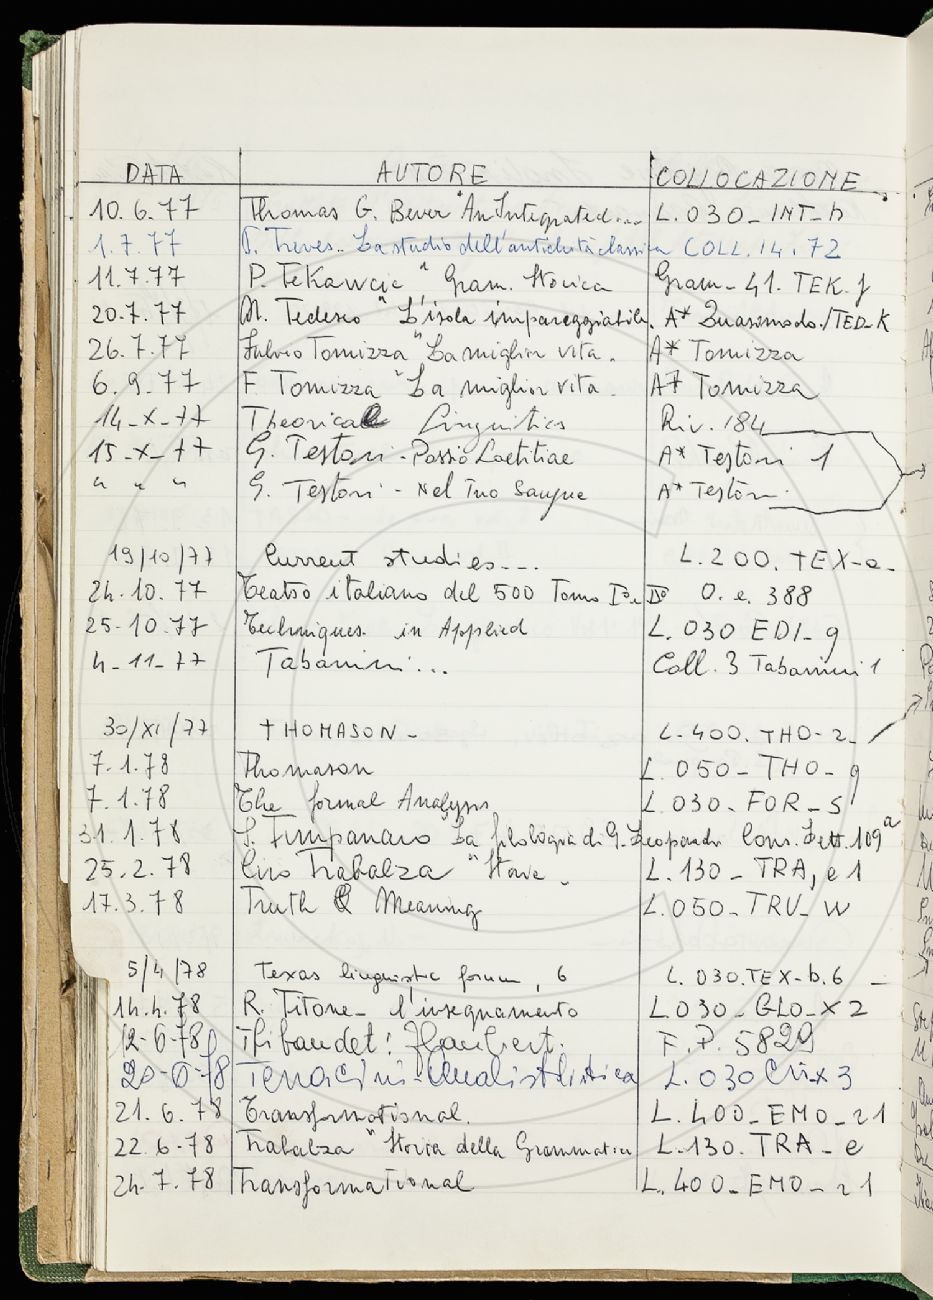 DATA AUTORE COLLOCAZIONE
10.6.77 Thomas G. Bever "An Integrated... L.030_INT_b
1.7.77 P. Treves - Lo studio dell'antichità classica COLL.14.72
11.7.77 P. Tekavcic " Gram. Storica Gram_41.TEK.f
20.7.77 N. Tedesco "L'isola impareggiabile. A* Quasimodo./TED_K
26.7.77 Fulvio Tomizza "La miglior vita. A* Tomizza
6.9.77 F Tomizza "La miglior vita. A* Tomizza
14_X_77 Theorical Linguistics Riv.184
15_X_77 G. Testori - Passio Laetitiae A* Testori 1
" " " G. Testori - Nel Tuo Sangue A* Testori
19/10/77 Current studies... L.200.TEX-a.
24.10.77 Teatro italiano del 500 Tomo I° e II° O. e. 388
25-10.77 Techniques in Applied L.030 EDI_g
4-11-77 Tabarrini... Coll. 3 Tabarrini 1
30/XI/77 THOMASON- L-400.THO-2_
7.1.78 Thomason L.050_THO_g
7.1.78 The formal Analysis L.030_FOR_s
31.1.78 S. Timpanaro La filologia di G. Leopardi Cons. Lett.109ª
25.2.78 Ciro Trabalza "Storia L.130_TRA, e 1
17.3.78 Truth & Meaning L.050_TRU_w
5/4/78 Texas linguistic forum, 6 L.030.TEX-b.6 _
14.4.78 R. Titone_ l'insegnamento L030_GLO_X2
12-6-78 Thibaudet: Flaubert. F.P. 5829
20-6-78 Terracini: L.030 x3
21.6.78 Transformational. L.400_EMO_21
22.6-78 Trabalza "Storia della Grammatica L.130.TRA_e
24.7.78 Transformational L.400_EMO_21